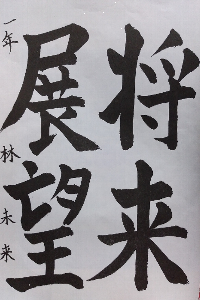 将来
展望
一年 林未来